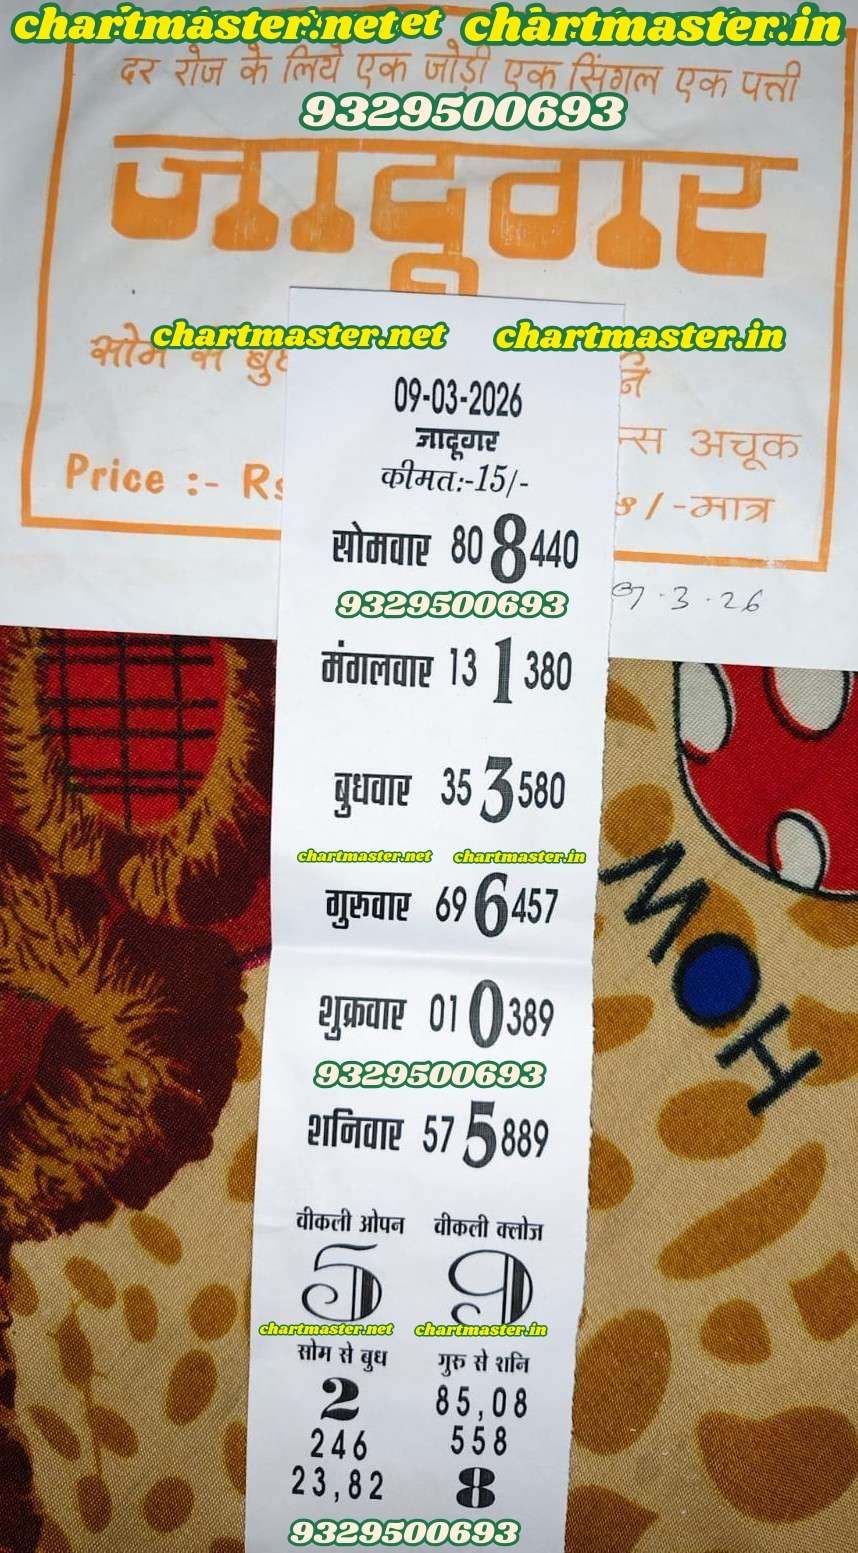 chartmaster.net chartmaster.in
दर रोज के लिये एक जोड़ी एक सिंगल एक पत्ती
9329500693
जादूगर
chartmaster.net chartmaster.in
सोम से बुध
09-03-2026
जादूगर
अचूक
कीमत:-15/-
Price :- Rs
/-मात्र
सोमवार 80 8 440
9329500693
मंगलवार 13 1 380
बुधवार 35 3 580
chartmaster.net chartmaster.in
गुरुवार 69 6 457
शुक्रवार 01 0 389
9329500693
शनिवार 57 5 889
वीकली ओपन वीकली क्लोज
5 9
chartmaster.net chartmaster.in
सोम से बुध गुरु से शनि
2 85,08
246 558
23,82 8
9329500693
HOW